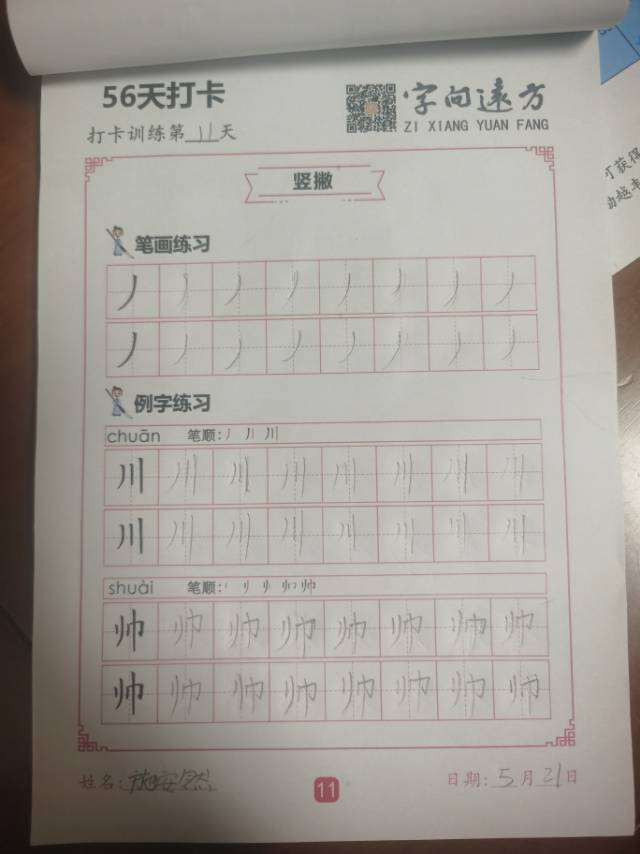 56天打卡
字向遠方
打卡训练第11天
ZI XIANG YUAN FANG
竖撇
笔画练习
丿丿丿丿丿丿丿丿
丿丿丿丿丿丿丿丿
例字练习
chuān 笔顺: 丿 丿丨 川
川川川川川川川川
川川川川川川川川
shuài 笔顺: 丨 刂 帅
帅帅帅帅帅帅帅帅
帅帅帅帅帅帅帅帅
姓名:施安然
11
日期:5月21日
可获得